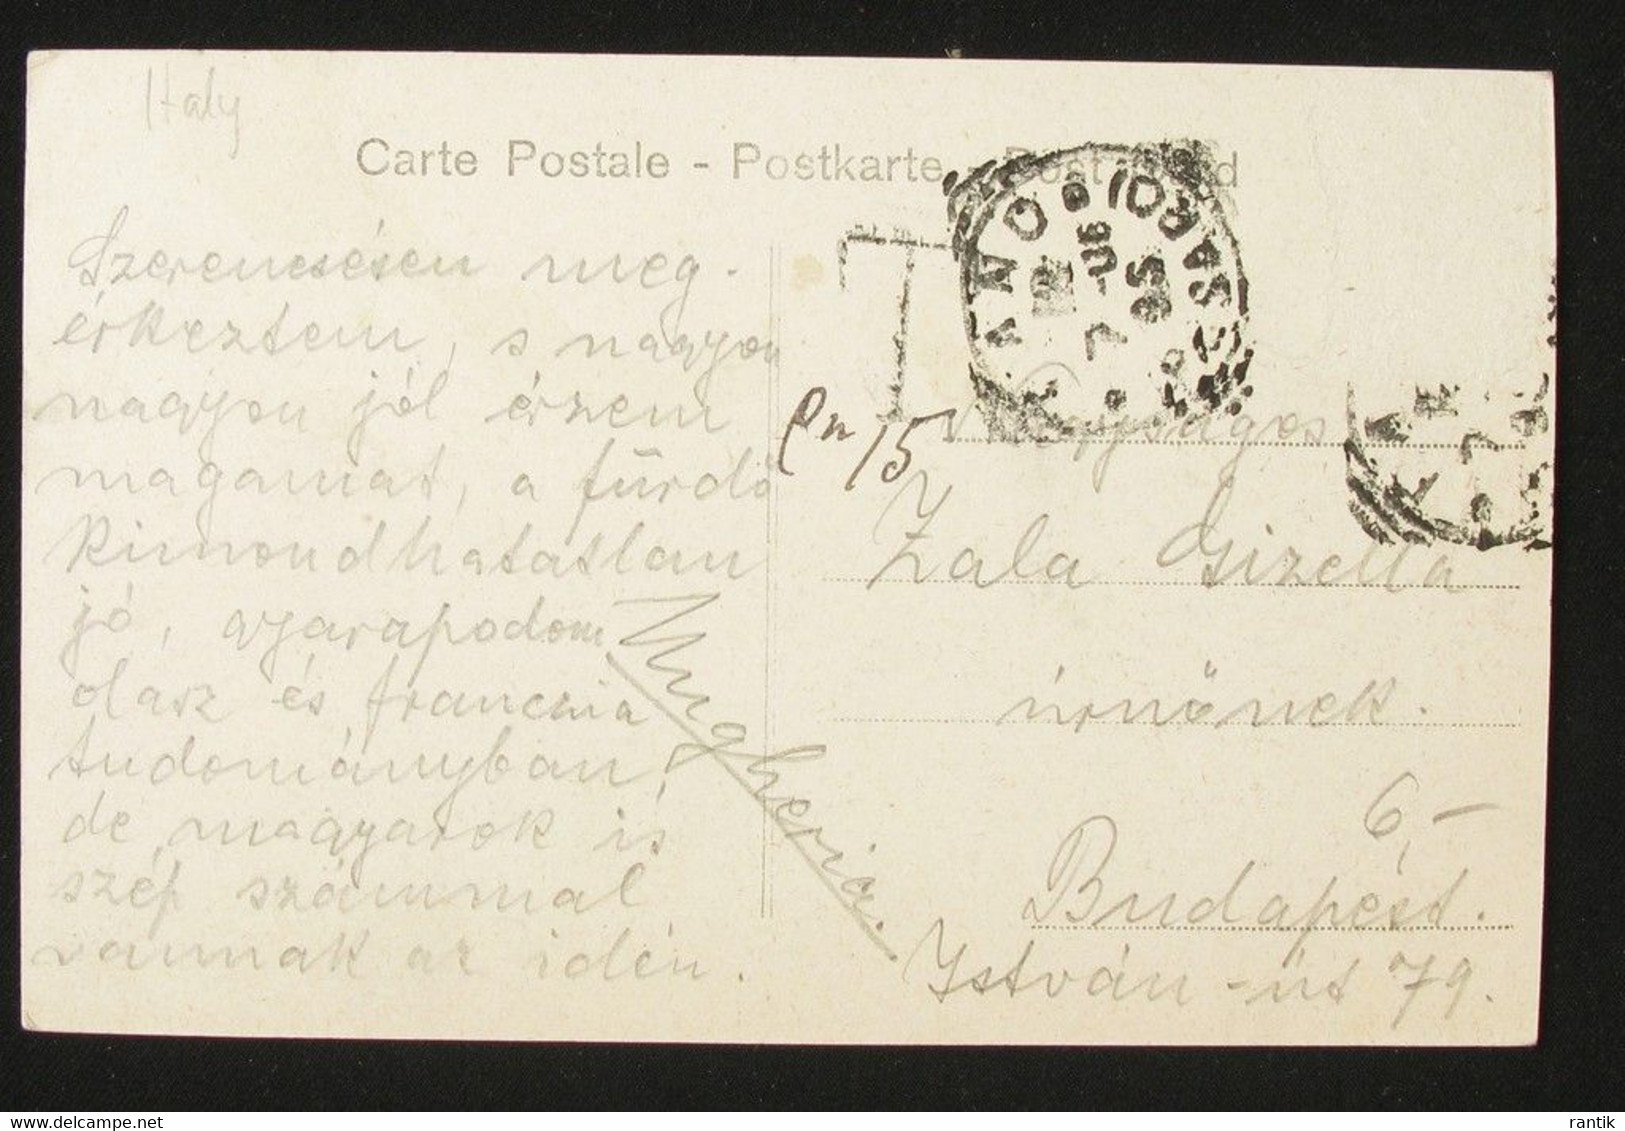 Italy
Carte Postale - Postkarte - Post
Szerencsésen meg-
érkeztem, s nagyon
nagyon jól érzem
magamat, a fürdő
kimondhatatlan
jó, gyarapodom
olasz és franczia
tudományban,
de magyarok is
szép számmal
vannak az idén.
Ungheria.
T
15
Nagyságos
Zala Gizella
úrnőnek.
6,-
Budapest.
István-út 79.
rantik